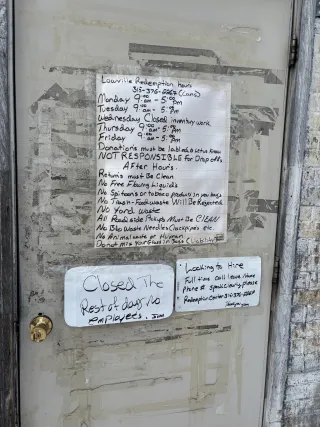 Lowville Redemption hours
315-376-2262 (Cans)
Monday 9:00 am - 5:00 pm
Tuesday 9:00 am - 5:00 pm
Wednesday Closed inventory work
Thursday 9:00 am - 5:00 pm
Friday 9:00 am - 5:00 pm
Donations must be labled
NOT RESPONSIBLE for Drop offs
After Hours.
Returns Must Be Clean
No Free Flowing Liquids
No Spitoons or tobacco products in you bags
No Trash-Foodwaste Will Be Rejected
No Yard waste
All Roadside Pickups Must Be CLEAN
No Bio Waste Needles Crackpipes etc.
No Animal waste or Human
Donot mix your Glass in Bags
Closed The
Rest of day No
employees. Jim
Looking to Hire
Full time call leave Name
Phone # speak clearly please
Redemption Center 315-376-2262